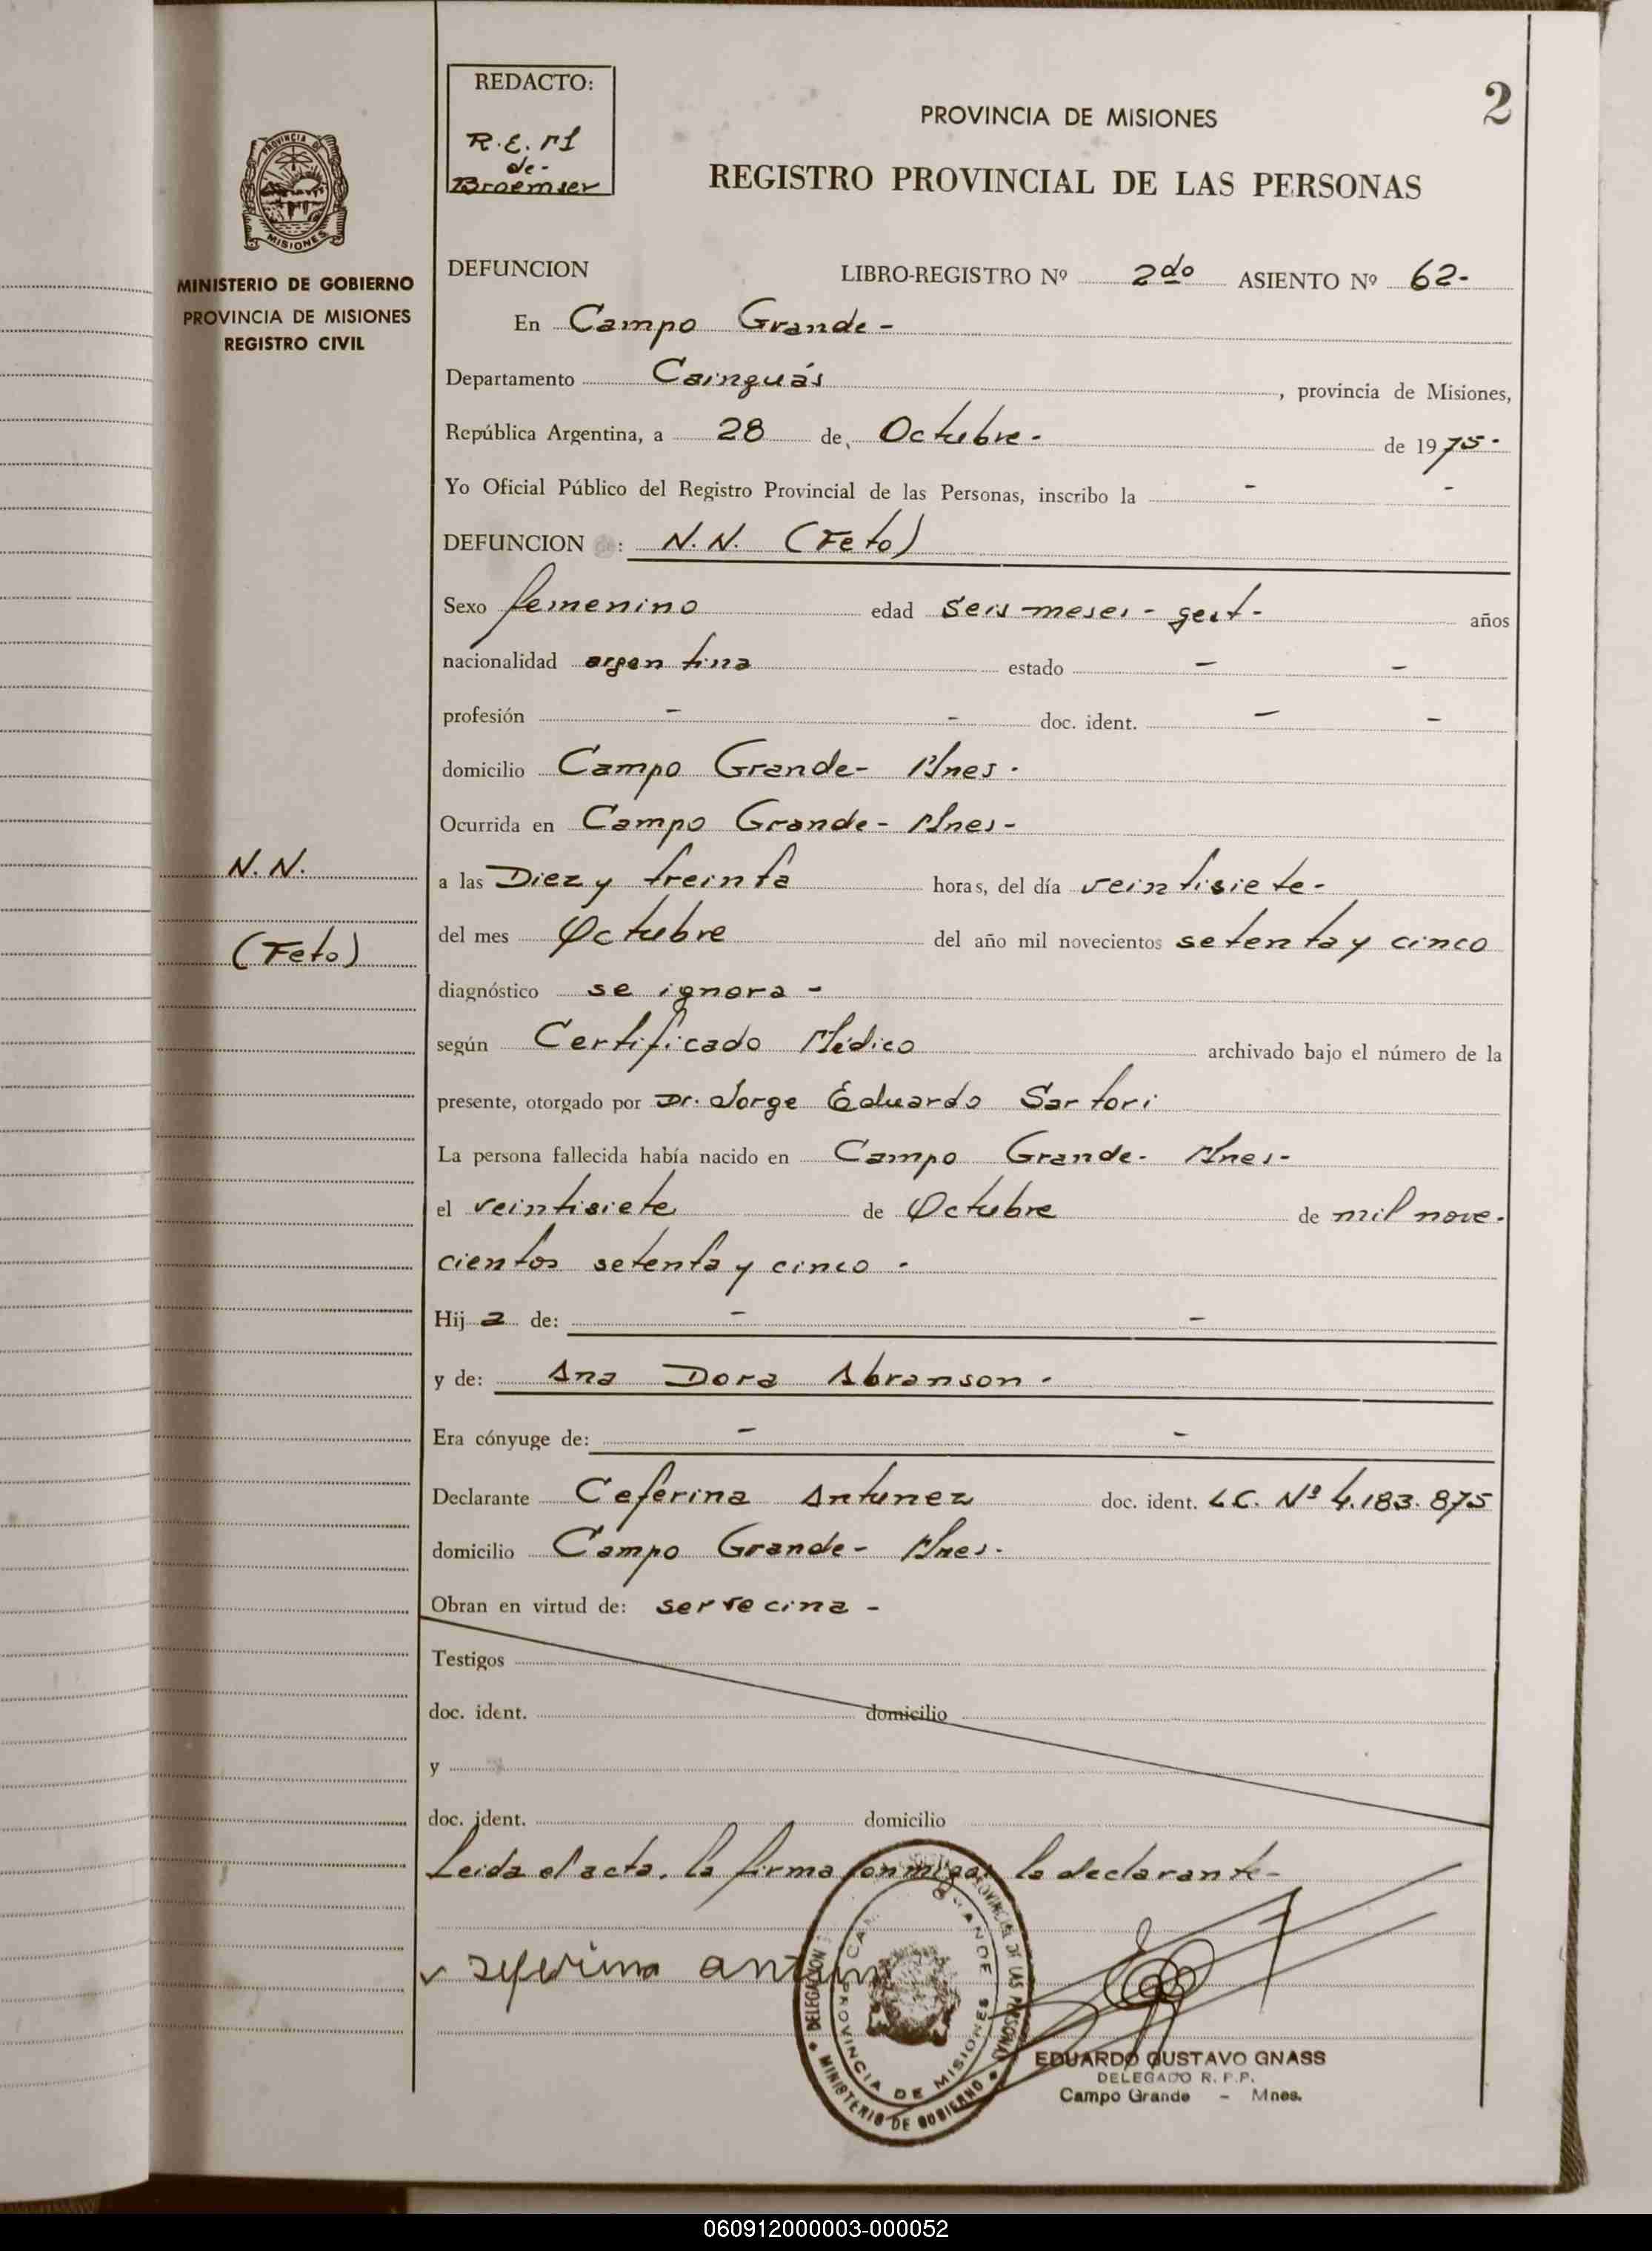 2
REDACTO:
R.E.M
de-
Broemser
PROVINCIA DE MISIONES
REGISTRO PROVINCIAL DE LAS PERSONAS
PROVINCIA DE
MISIONES
MINISTERIO DE GOBIERNO
PROVINCIA DE MISIONES
REGISTRO CIVIL
DEFUNCION LIBRO-REGISTRO Nº 2do ASIENTO Nº 62-
En Campo Grande-
Departamento Cainguás, provincia de Misiones,
República Argentina, a 28 de Octubre- de 1975-
Yo Oficial Público del Registro Provincial de las Personas, inscribo la - -
DEFUNCION de: N.N. (Feto)
Sexo femenino edad seis meses- gest- años
nacionalidad argentina estado - -
profesión - - doc. ident. - -
domicilio Campo Grande- Mnes.
Ocurrida en Campo Grande- Mnes-
N.N.
a las Diez y treinta horas, del día veintisiete-
(Feto)
del mes Octubre del año mil novecientos setenta y cinco
diagnóstico se ignora-
según Certificado Médico archivado bajo el número de la
presente, otorgado por Dr. Jorge Eduardo Sartori
La persona fallecida había nacido en Campo Grande- Mnes-
el veintisiete de Octubre de mil nove-
cientos setenta y cinco-
Hija de: - -
y de: Ana Dora Abranson-
Era cónyuge de: - -
Declarante Ceferina Antunez doc. ident. L.C. Nº 4.183.875
domicilio Campo Grande- Mnes-
Obran en virtud de: ser vecina-
Testigos
doc. ident. domicilio
y
doc. ident. domicilio
Leida el acta, la firma conmigo, la declarante-
DELEGACION PROVINCIAL DE LAS PERSONAS
MINISTERIO DE GOBIERNO
PROVINCIA DE MISIONES
EDUARDO GUSTAVO GNASS
DELEGADO R. P. P.
Campo Grande - Mnes.
060912000003-000052